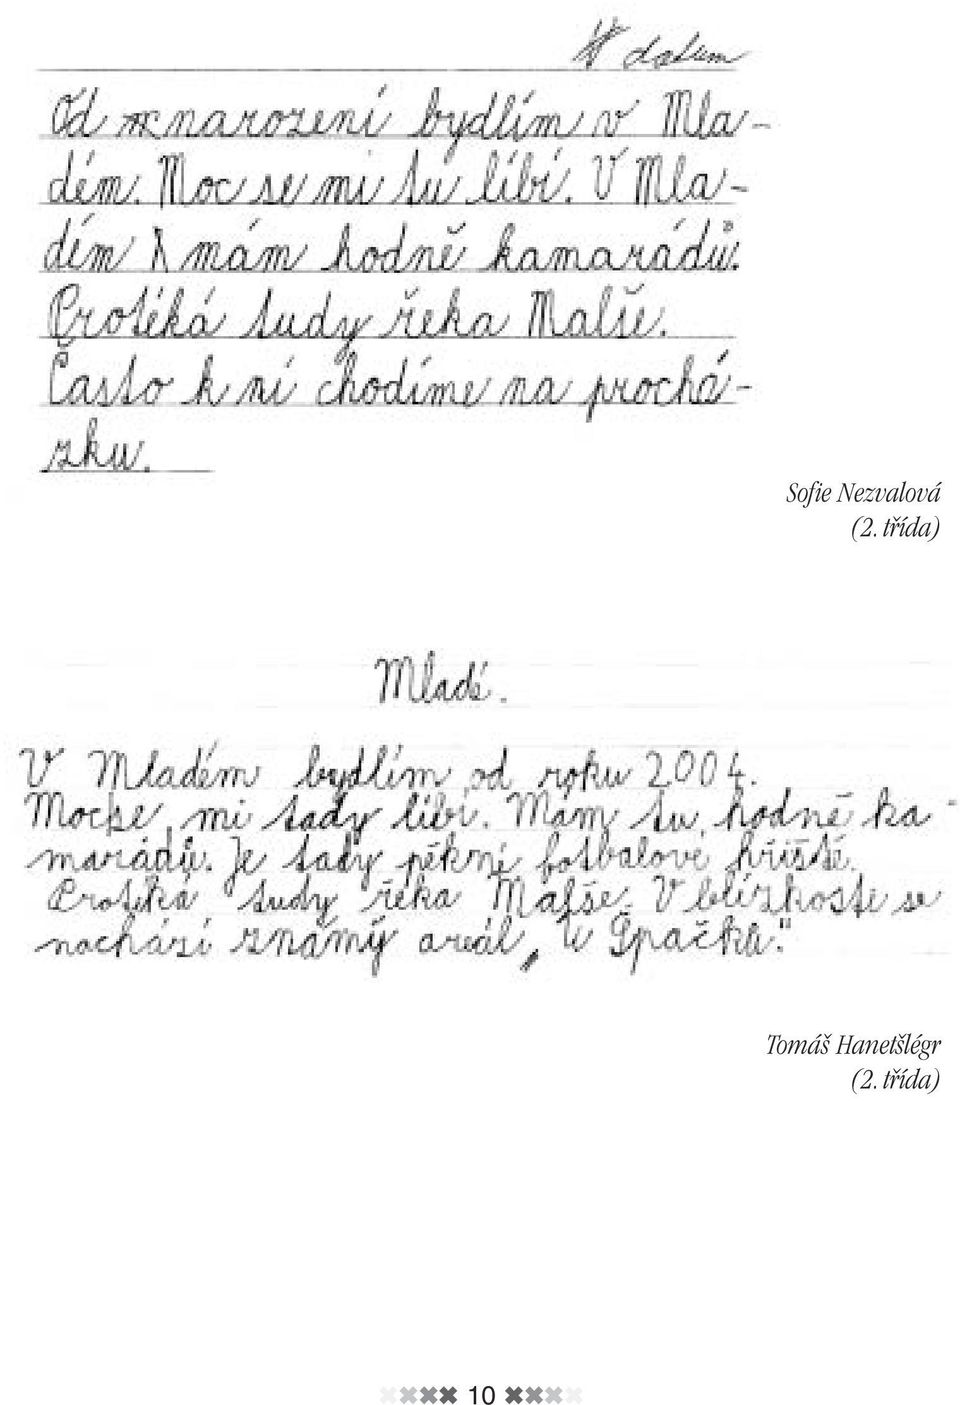 datum
Od narození bydlím v Mla-
dém. Moc se mi tu líbí. V Mla-
dém mám hodně kamarádů.
Protéká tudy řeka Malše.
Často k ní chodíme na prochá-
zku.
Sofie Nezvalová
(2. třída)
Mladé.
V Mladém bydlím od roku 2004.
Moc se mi tady líbí. Mám tu hodně ka-
marádů. Je tady pěkné fotbalové hřiště.
Protéká tudy řeka Malše. V blízkosti se
nachází známý areál „U Špačků".
Tomáš Hanetšlégr
(2. třída)
10